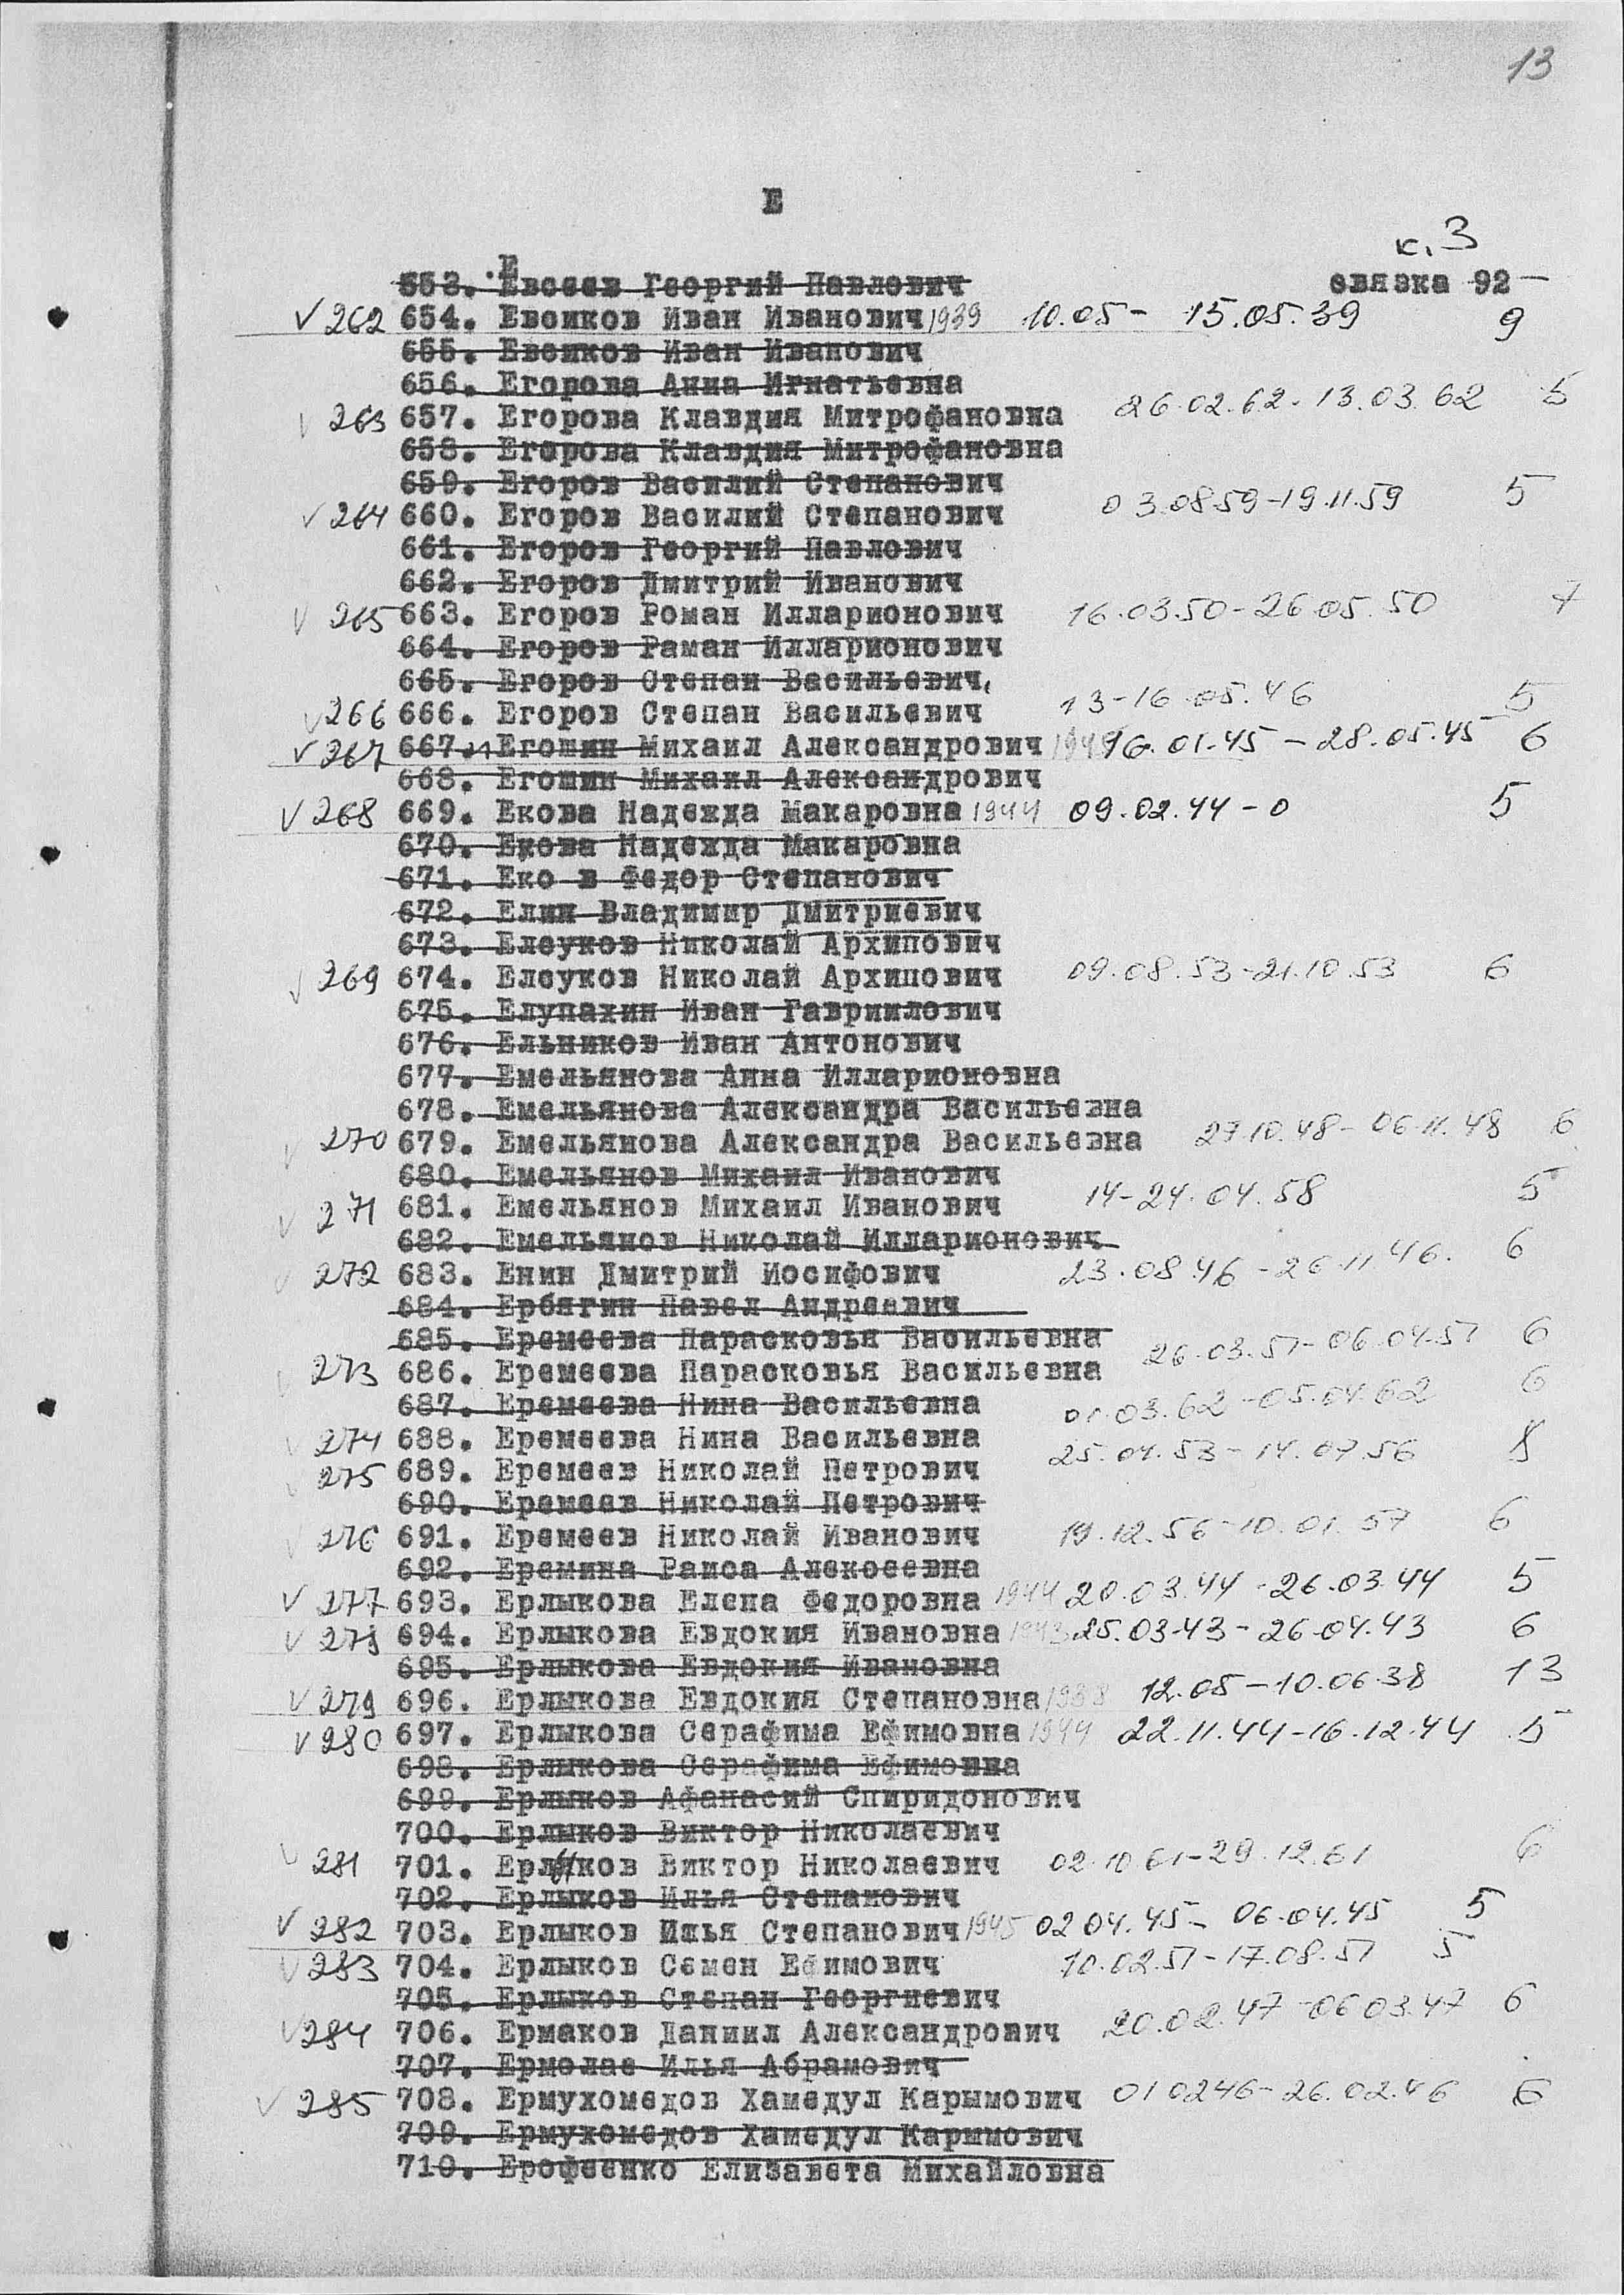 13
Е
к. 3
связка 92
653. Евсеев Георгий Павлович
V 262 654. Евсиков Иван Иванович 1939 10.05 - 15.05.39 9
655. Евсиков Иван Иванович
656. Егорова Анна Игнатьевна
V 263 657. Егорова Клавдия Митрофановна 26.02.62 - 13.03.62 5
658. Егорова Клавдия Митрофановна
659. Егоров Василий Степанович
V 264 660. Егоров Василий Степанович 03.08.59-19.11.59 5
661. Егоров Георгий Павлович
662. Егоров Дмитрий Иванович
V 265 663. Егоров Роман Илларионович 16.03.50-26.05.50 7
664. Егоров Раман Илларионович
665. Егоров Степан Васильевич,
V 266 666. Егоров Степан Васильевич 13-16.05.46 5
V 267 667. Егошин Михаил Александрович 16.01.45 - 28.05.45 6
668. Егошин Михаил Александрович
V 268 669. Екова Надежда Макаровна 1944 09.02.44 - 0 5
670. Екова Надежда Макаровна
671. Еко в Федор Степанович
672. Елин Владимир Дмитриевич
673. Елсуков Николай Архипович
V 269 674. Елсуков Николай Архипович 09.08.53-21.10.53 6
675. Елупахин Иван Гавриилович
676. Ельников Иван Антонович
677. Емельянова Анна Илларионовна
678. Емельянова Александра Васильевна
V 270 679. Емельянова Александра Васильевна 27.10.48 - 06.11.48 6
680. Емельянов Михаил Иванович
V 271 681. Емельянов Михаил Иванович 14-24.04.58 5
682. Емельянов Николай Илларионович
V 272 683. Енин Дмитрий Иосифович 23.08.46 - 26.11.46. 6
684. Ербягин Павел Андреевич
685. Еремеева Парасковья Васильевна
V 273 686. Еремеева Парасковья Васильевна 26.03.51-06.04.51 6
687. Еремеева Нина Васильевна
V 274 688. Еремеева Нина Васильевна 01.03.62-05.04.62 6
V 275 689. Еремеев Николай Петрович 25.04.53 - 14.07.56 8
690. Еремеев Николай Петрович
V 276 691. Еремеев Николай Иванович 19.12.56-10.01.57 6
692. Еремина Раиса Алексеевна
V 277 693. Ерлыкова Елена Федоровна 1944 20.03.44 - 26.03.44 5
V 278 694. Ерлыкова Евдокия Ивановна 1943 25.03.43 - 26.04.43 6
695. Ерлыкова Евдокия Ивановна
V 279 696. Ерлыкова Евдокия Степановна 1938 12.05 - 10.06.38 13
V 280 697. Ерлыкова Серафима Ефимовна 1944 22.11.44-16.12.44 5
698. Ерлыкова Серафима Ефимовна
699. Ерлыков Афанасий Спиридонович
700. Ерлыков Виктор Николаевич
V 281 701. Ерлыков Виктор Николаевич 02.10.61-29.12.61 6
702. Ерлыков Илья Степанович
V 282 703. Ерлыков Илья Степанович 1945 02.04.45 - 06.04.45 5
V 283 704. Ерлыков Семен Ефимович 10.02.51-17.08.51 5
705. Ерлыков Степан Георгиевич
V 284 706. Ермаков Даниил Александрович 20.02.47-06.03.47 6
707. Ермолае Илья Абрамович
V 285 708. Ермухомедов Хамедул Карымович 01.02.46 - 26.02.46 6
709. Ермухомедов Хамедул Карымович
710. Ерофеенко Елизавета Михайловна